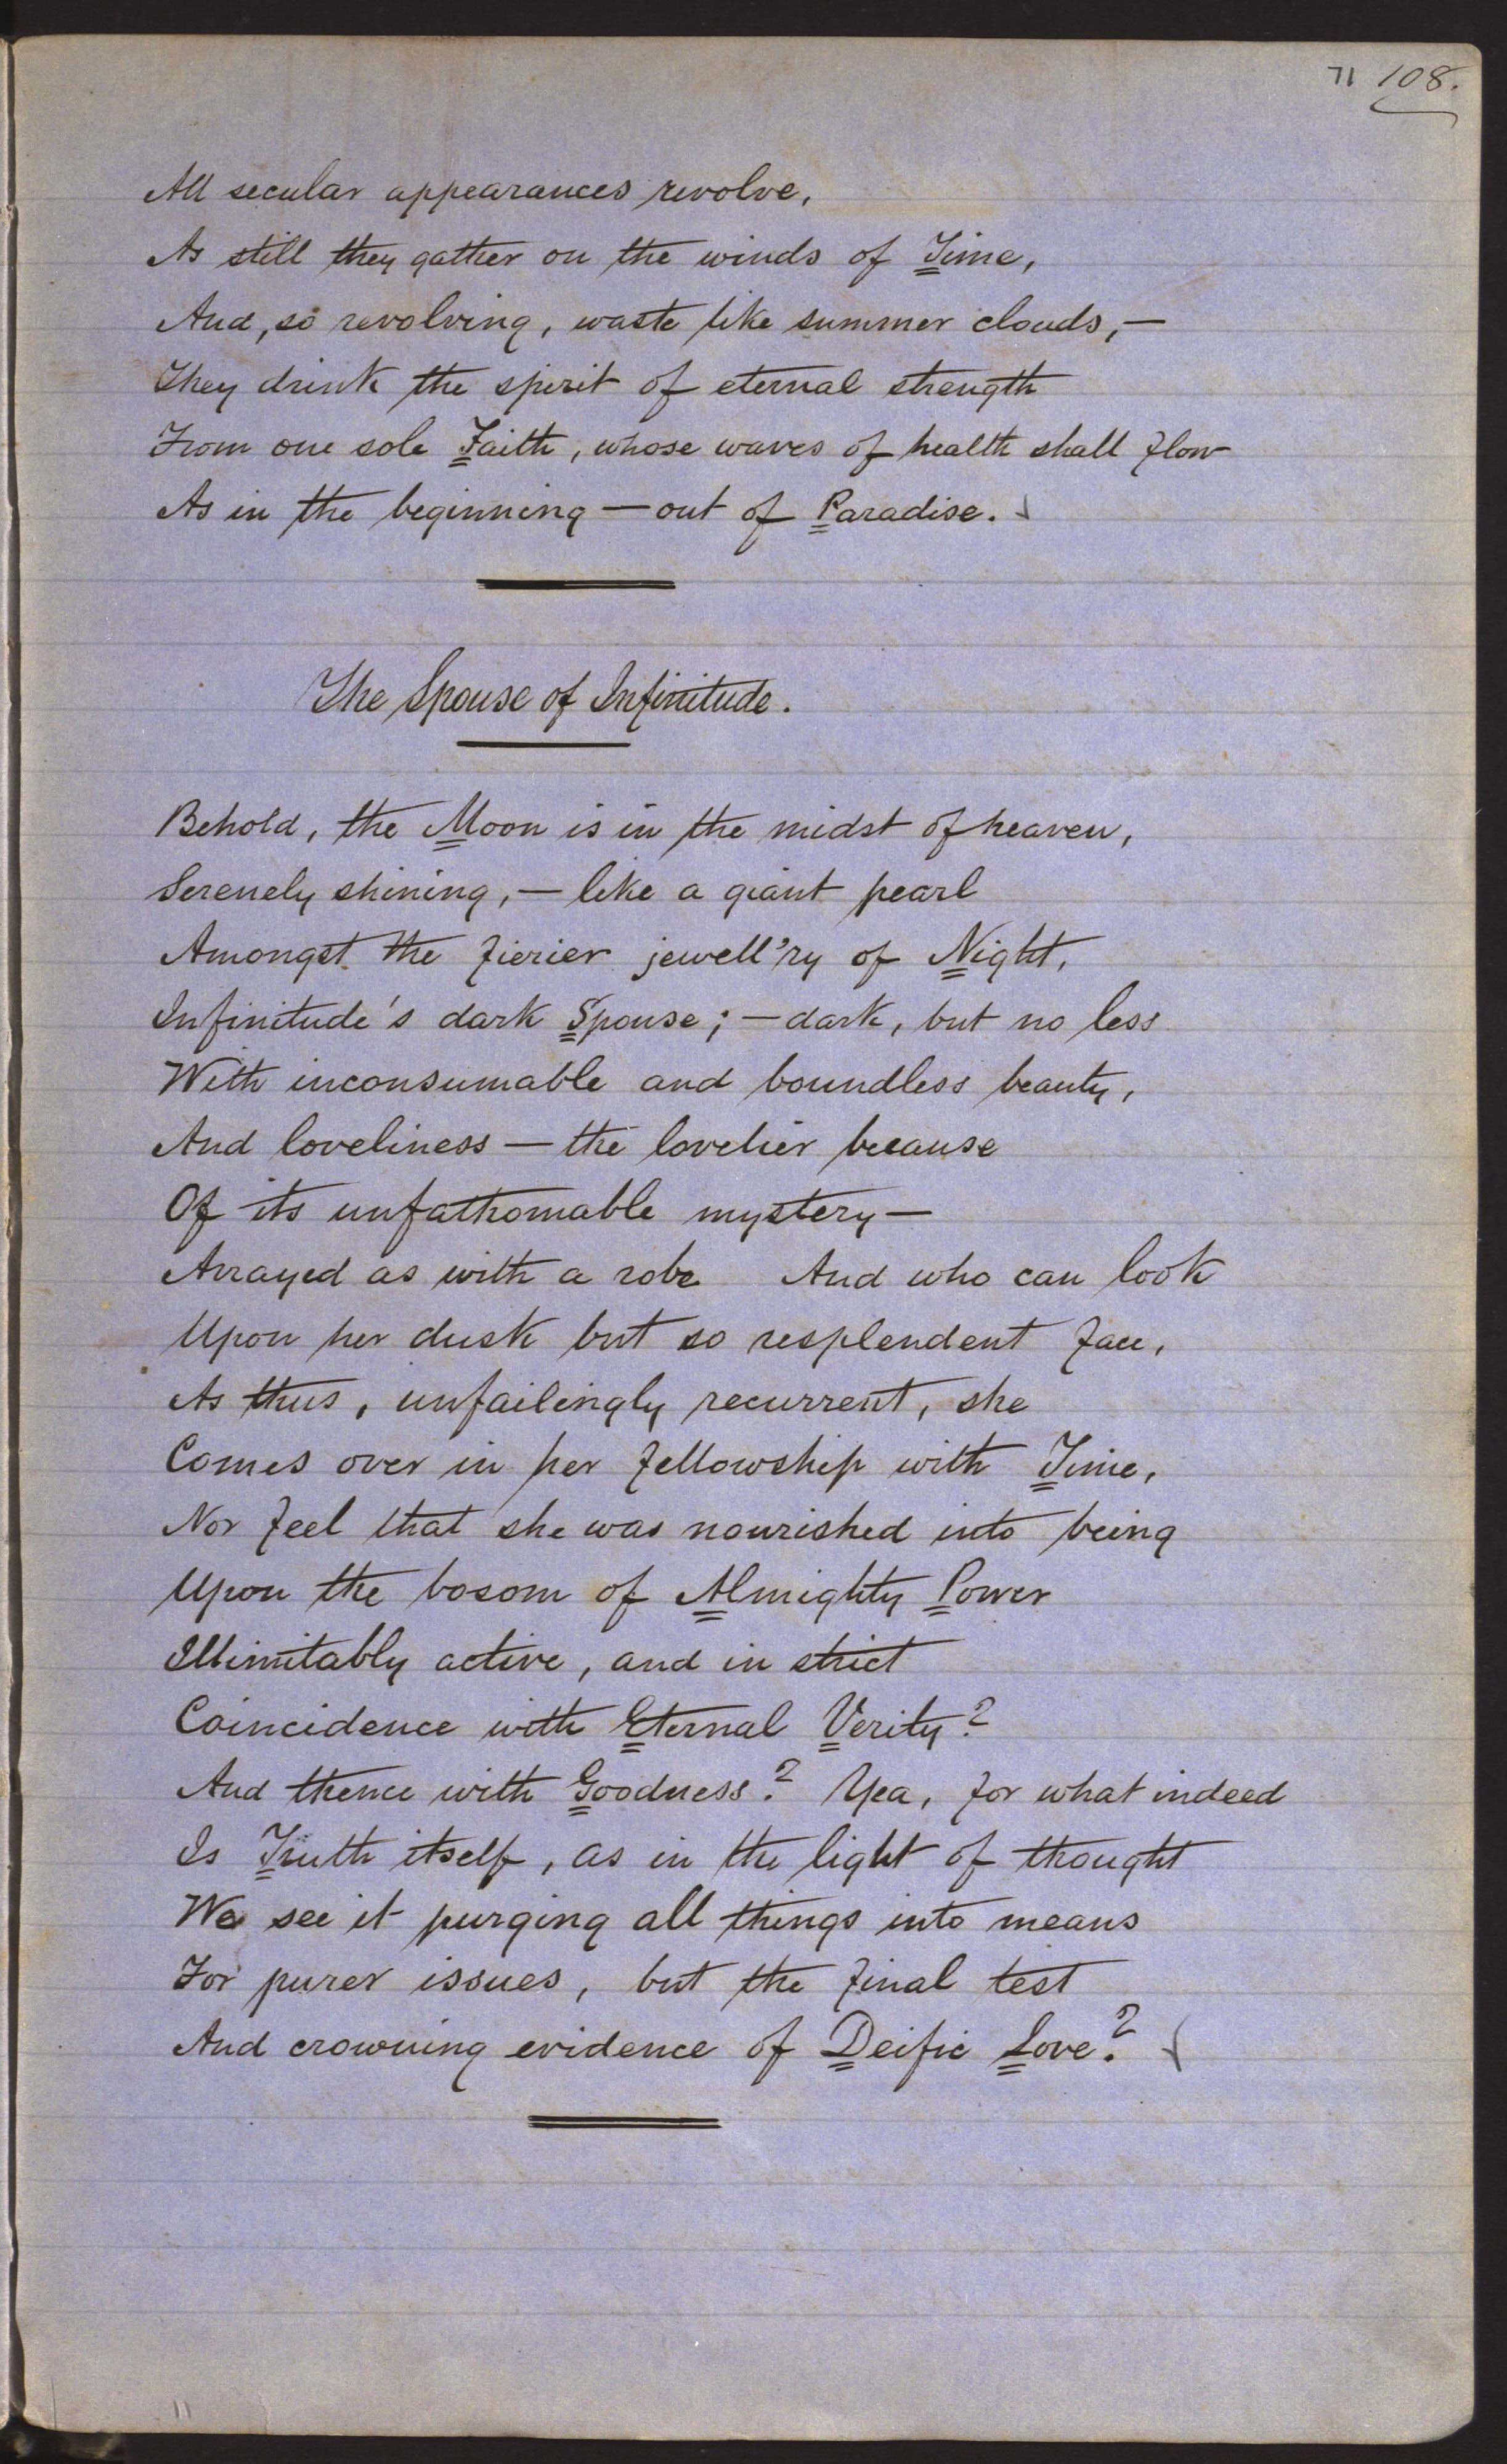 71 108.
All secular appearances revolve,
As still they gather on the winds of Time,
And, so revolving, waste like summer clouds,—
They drink the spirit of eternal strength
From one sole Faith, whose waves of health shall flow
As in the beginning — out of Paradise.
The Spouse of Infinitude.
Behold, the Moon is in the midst of heaven,
Serenely shining, — like a giant pearl
Amongst the fierier jewell'ry of Night,
Infinitude's dark Spouse; — dark, but no less
With inconsumable and boundless beauty,
And loveliness — the lovelier because
Of its unfathomable mystery —
Arrayed as with a robe And who can look
Upon her dusk but so resplendent face,
As thus, unfailingly recurrent, she
Comes over in her fellowship with Time,
Nor feel that she was nourished into being
Upon the bosom of Almighty Power
Illimitably active, and in strict
Coincidence with Eternal Verity?
And thence with Goodness? Yea, for what indeed
Is Truth itself, as in the light of thought
We see it purging all things into means
For purer issues, but the final test
And crowning evidence of Deific Love?